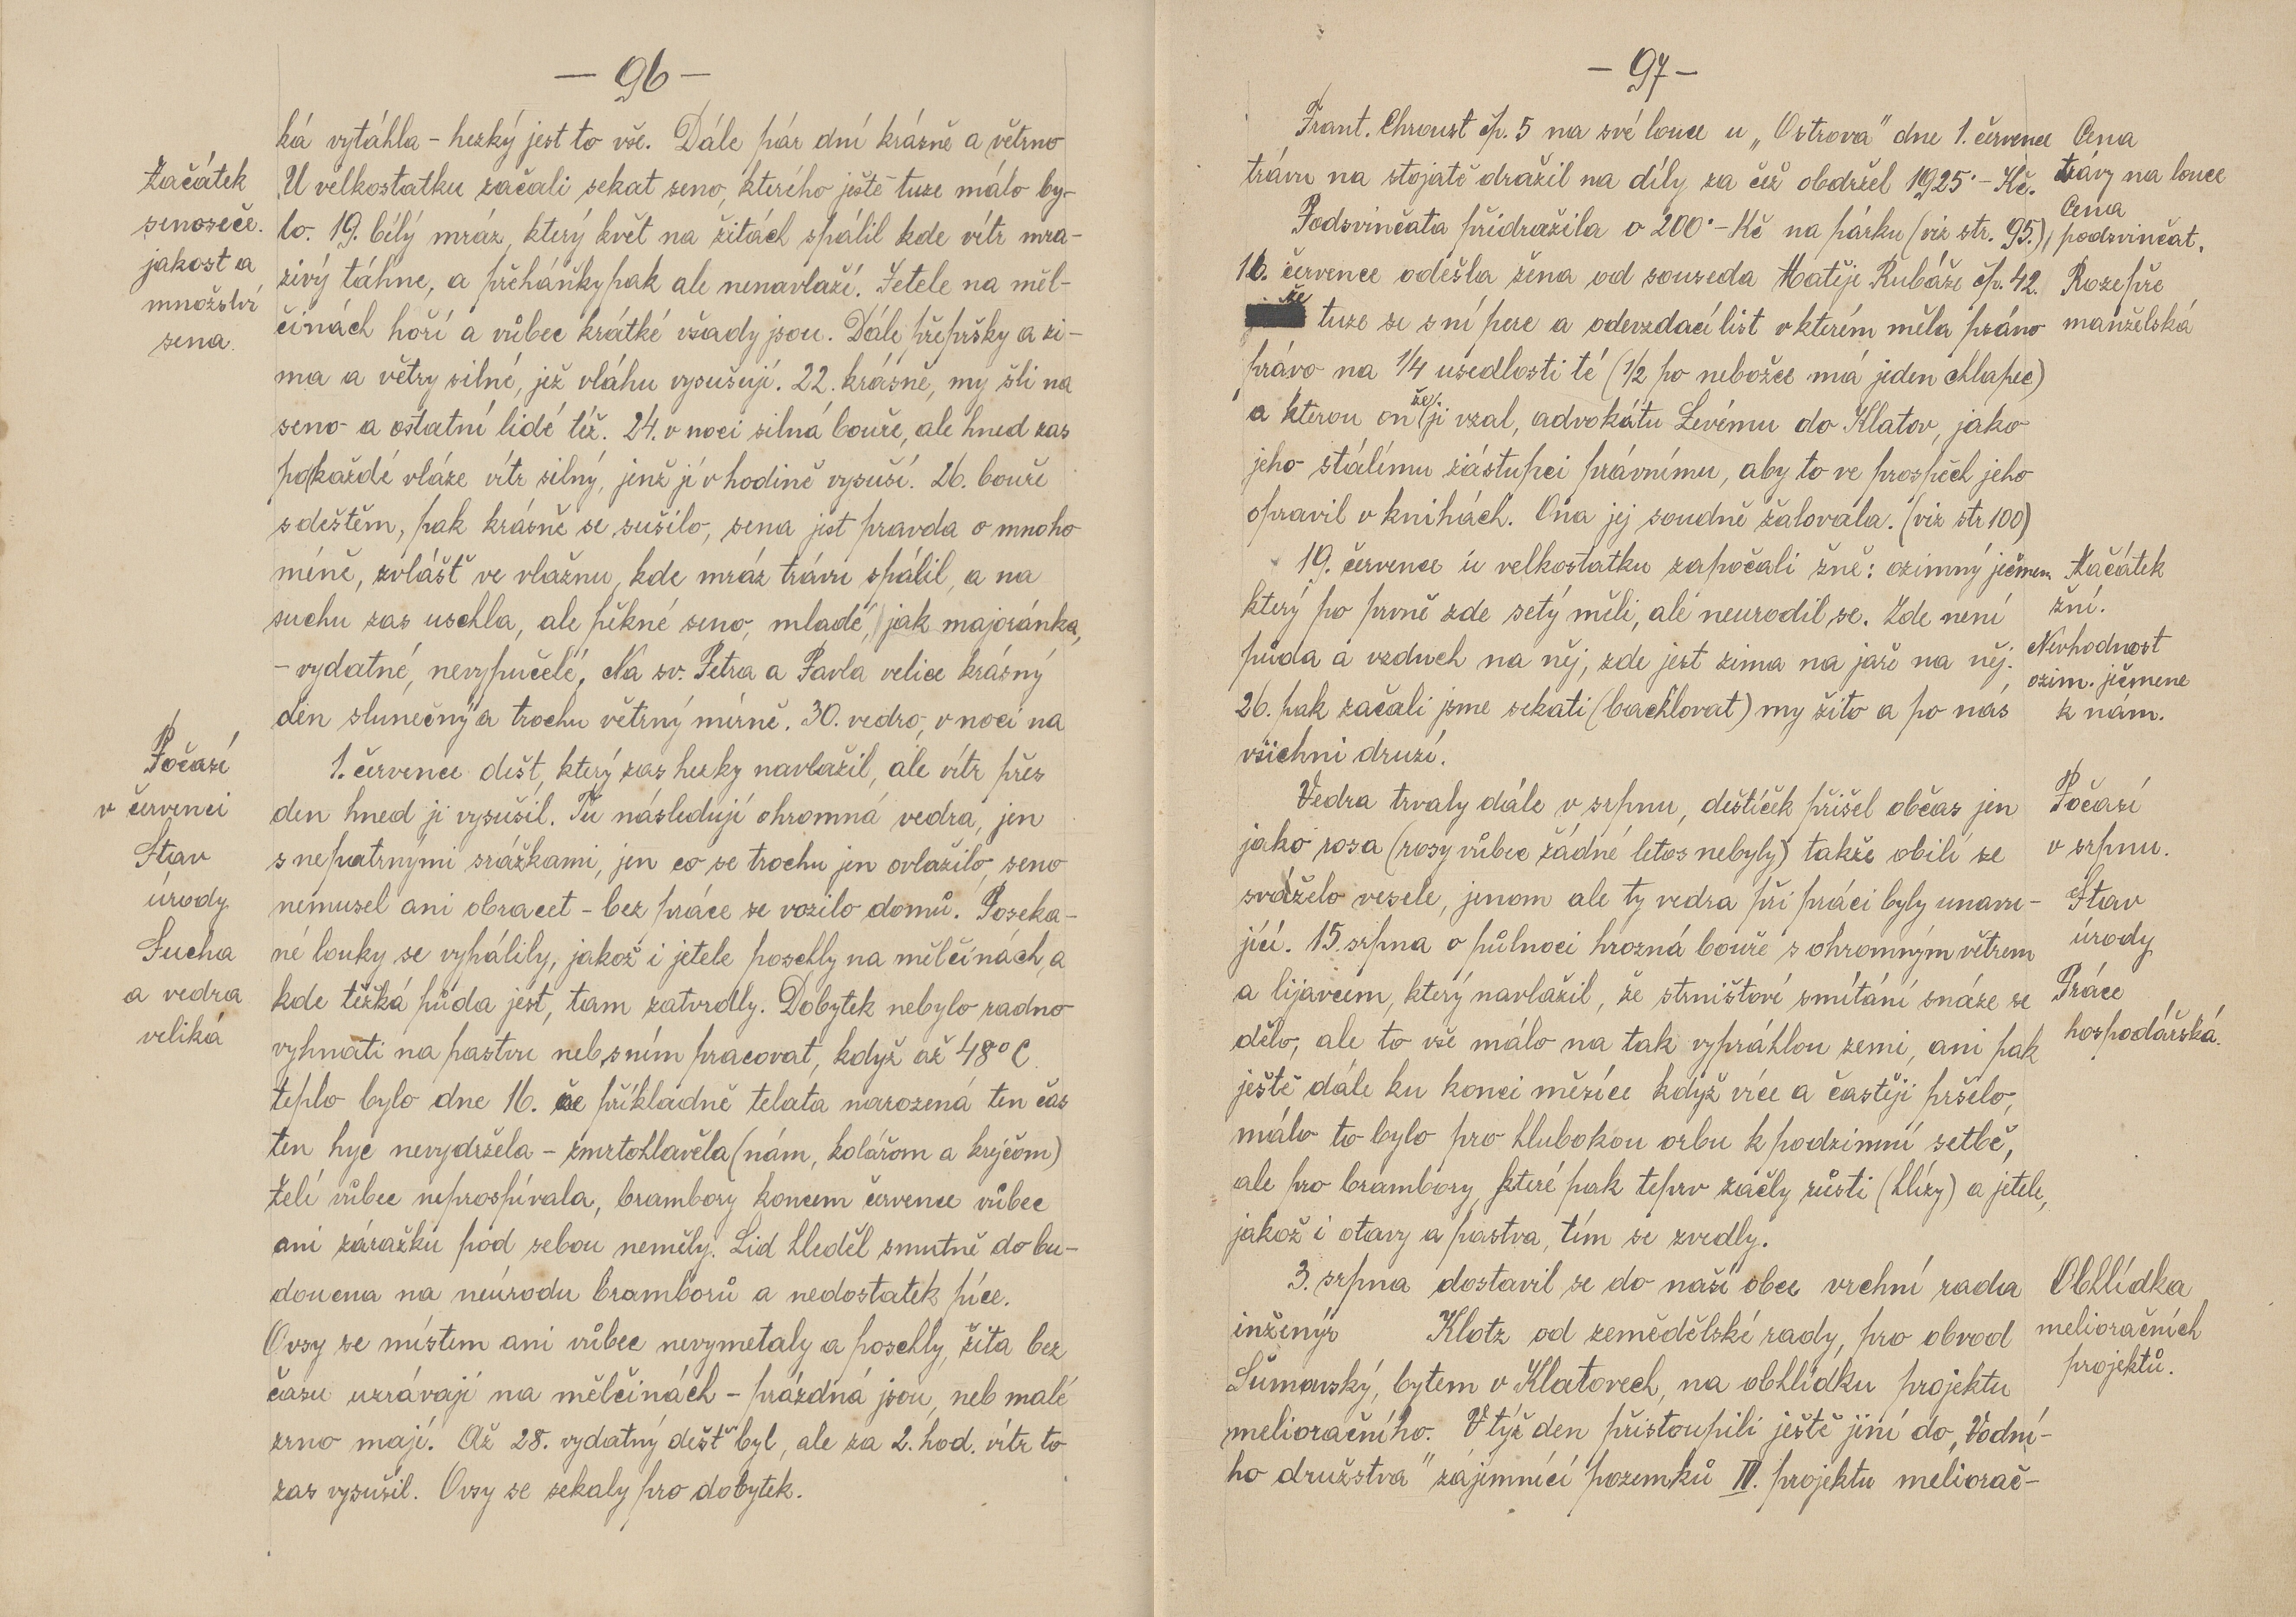 — 96 —
ká vytáhla – hezký jest to vše. Dále pár dní krásně a větrno
Začátek
senoseče.
jakost a
množství
sena.
U velkostatku začali sekat seno, kterého ještě tuze málo by-
lo. 19. bílý mráz, který květ na žitách spálil kde vítr mra-
zivý táhne, a přeháňky pak ale nenavlaží. Jetele na měl-
činách hoří a vůbec krátké všady jsou. Dále přepršky a zi-
ma a větry silné, jež vláhu vysušují. 22. krásně, my šli na
seno a ostatní lidé též. 24. v noci silná bouře, ale hned zas
po každé vláze vítr silný, jenž ji v hodině vysuší. 26. bouře
s deštěm, pak krásně se sušilo, sena jest pravda o mnoho
méně, zvlášť ve vlažnu, kde mráz trávu spálil, a na
suchu zas uschla, ale pěkné seno, mladé, jak majoránka,
– vydatné, nevypučelé. Na sv. Petra a Pavla velice krásný
den slunečný a trochu větrný mírně. 30. vedro, v noci na
Počasí
v červenci
Stav
úrody
Sucha
a vedra
veliká
1. července dešť, který zas hezky navlažil, ale vítr přes
den hned ji vysušil. Tu následují ohromná vedra, jen
s nepatrnými srážkami, jen co se trochu jen ovlažilo, seno
nemusel ani obracet – bez práce se vozilo domů. Poseka-
né louky se vypálily, jakož i jetele poschly na mělčinách, a
kde těžká půda jest, tam zatvrdly. Dobytek nebylo radno
vyhnati na pastvu neb s ním pracovat, když až 48° C.
teplo bylo dne 16. že příkladně telata narozená ten čas
ten hyc nevydržela – zmrtohlavěla (nám, kolářom a krejčom)
Zelí vůbec neprospívala, brambory koncem července vůbec
ani zárazku pod sebou neměly. Lid hleděl smutně do bu-
doucna na neúrodu bramborů a nedostatek píce.
Ovsy se místem ani vůbec nevymetaly a poschly, žita bez
času uzrávají na mělčinách – prázdná jsou, neb malé
zrno mají. Až 28. vydatný dešť byl, ale za 2. hod. vítr to
zas vysušil. Ovsy se sekaly pro dobytek.
– 97 –
Frant. Chroust čp. 5 na své louce u „Ostrova" dne 1. července
trávu na stojatě dražil na díly za čež obdržel 1925·– Kč.
Cena
trávy na louce
Podsvinčata přidražila o 200·– Kč na párku (viz str. 95.),
Cena
podsvinčat.
16. července odešla žena od souseda Matěje Rubáše čp. 42.
že tuze se s ní pere a odevzdací list v kterém měla práno
právo na 1/4 usedlosti té (1/2 po nebožce má jeden chlapec)
a kterou on že ji vzal, advokátu Levému do Klatov, jako
jeho stálímu zástupci právnímu, aby to ve prospěch jeho
opravil v knihách. Ona jej soudně žalovala. (viz str 100)
Rozepře
manželská
19. července u velkostatku započali žně: ozimný ječmen
který po prvně zde setý měli, ale neurodil se. Zde není
půda a vzduch na něj, zde jest zima na jaře na něj.
26. pak začali jsme sekati (bachlovat) my žito a po nás
všichni druzí.
Začátek
žní.
Nevhodnost
ozim. ječmene
k nám.
Vedra trvaly dále v srpnu, deštíček přišel občas jen
jako rosa (rosy vůbec žádné letos nebyly) takže obilí se
sváželo vesele, jenom ale ty vedra při práci byly unavu-
jící. 15. srpna o půlnoci hrozná bouře s ohromným větrem
a lijavcem, který navlažil, že strništové smítání snáze se
dělo, ale to vše málo na tak vypráhlou zemi, ani pak
ještě dále ku konci měsíce když více a častěji pršelo,
málo to bylo pro hlubokou orbu k podzimní setbě,
ale pro brambory, které pak teprv začly růsti (hlízy) a jetele,
jakož i otavy a pastva, tím se zvedly.
Počasí
v srpnu.
Stav
úrody
Práce
hospodářská.
3. srpna dostavil se do naší obce vrchní rada
inženýr Klotz od zemědělské rady, pro obvod
Šumavský, bytem v Klatovech, na obhlídku projektu
melioračního. V týž den přistoupili ještě jiní do „Vodní-
ho družstva" zájemníci pozemků IV. projektu meliorač-
Obhlídka
melioračních
projektů.